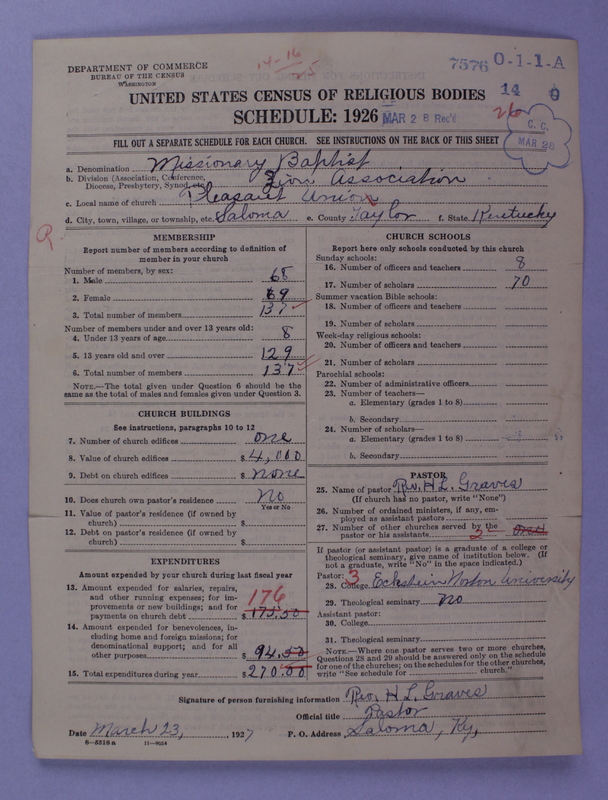 DEPARTMENT OF COMMERCE
BUREAU OF THE CENSUS
WASHINGTON
14-16
25
7576 0-1-1-A
14 0
26
UNITED STATES CENSUS OF RELIGIOUS BODIES
SCHEDULE: 1926
MAR 28 Rec'd
C. C.
MAR 28
FILL OUT A SEPARATE SCHEDULE FOR EACH CHURCH. SEE INSTRUCTIONS ON THE BACK OF THIS SHEET
a. Denomination Missionary Baptist
b. Division (Association, Conference, Diocese, Presbytery, Synod, etc. Zion Association
c. Local name of church Pleasant Union
d. City, town, village, or township, etc. Saloma e. County Taylor f. State Kentucky
MEMBERSHIP
Report number of members according to definition of
member in your church
Number of members, by sex:
1. Male 68
2. Female 69
3. Total number of members 137
Number of members under and over 13 years old:
4. Under 13 years of age 8
5. 13 years old and over 129
6. Total number of members 137
NOTE.—The total given under Question 6 should be the
same as the total of males and females given under Question 3.
CHURCH BUILDINGS
See instructions, paragraphs 10 to 12
7. Number of church edifices one
8. Value of church edifices $4,000
9. Debt on church edifices $none
10. Does church own pastor's residence No
Yes or No
11. Value of pastor's residence (if owned by
church) $
12. Debt on pastor's residence (if owned by
church) $
EXPENDITURES
Amount expended by your church during last fiscal year
13. Amount expended for salaries, repairs,
and other running expenses; for im-
provements or new buildings; and for
payments on church debt $175.50
176
14. Amount expended for benevolences, in-
cluding home and foreign missions; for
denominational support; and for all
other purposes $94.50
15. Total expenditures during year $270.00
CHURCH SCHOOLS
Report here only schools conducted by this church
Sunday schools:
16. Number of officers and teachers 8
17. Number of scholars 70
Summer vacation Bible schools:
18. Number of officers and teachers
19. Number of scholars
Week-day religious schools:
20. Number of officers and teachers
21. Number of scholars
Parochial schools:
22. Number of administrative officers
23. Number of teachers—
a. Elementary (grades 1 to 8)
b. Secondary
24. Number of scholars—
a. Elementary (grades 1 to 8)
b. Secondary
PASTOR
25. Name of pastor Rev. H L. Graves
(If church has no pastor, write "None")
26. Number of ordained ministers, if any, em-
ployed as assistant pastors
27. Number of other churches served by the
pastor or his assistants
If pastor (or assistant pastor) is a graduate of a college or
theological seminary, give name of institution below. (If
not a graduate, write "No" in the space indicated.)
Pastor: 3
28. College Eckstein Norton University
29. Theological seminary No
Assistant pastor:
30. College
31. Theological seminary
NOTE.—Where one pastor serves two or more churches,
Questions 28 and 29 should be answered only on the schedule
for one of the churches; on the schedules for the other churches,
write "See schedule for church."
Signature of person furnishing information Rev. H L. Graves
Official title Pastor
Date March 23, 1927 P. O. Address Saloma, Ky,
8-5518a 11-9054